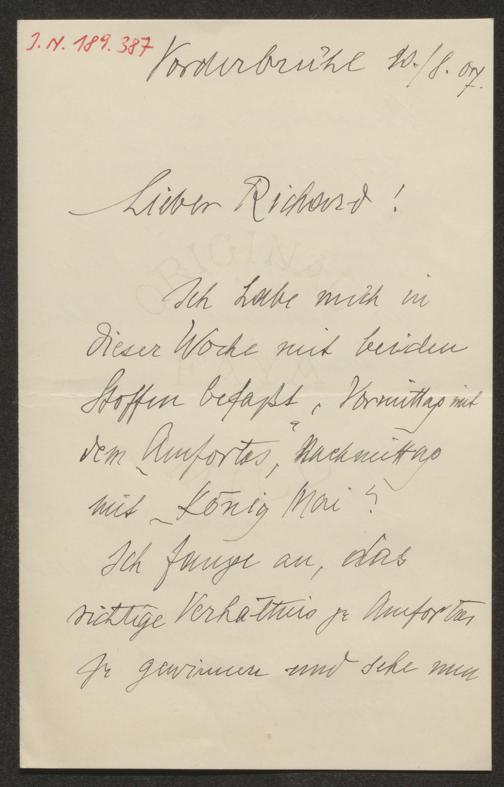 J.N. 189.387
Vorderbrühl 20./8. 07.
Lieber Richard!
Ich habe mich in
dieser Woche mit beiden
Stoffen befaßt, Vormittag mit
dem „Amfortas“, Nachmittag
mit „König Mai“.
Ich fange an, das
richtige Verhältnis zu Amfortas
zu gewinnen und sehe nun
ORIGINAL